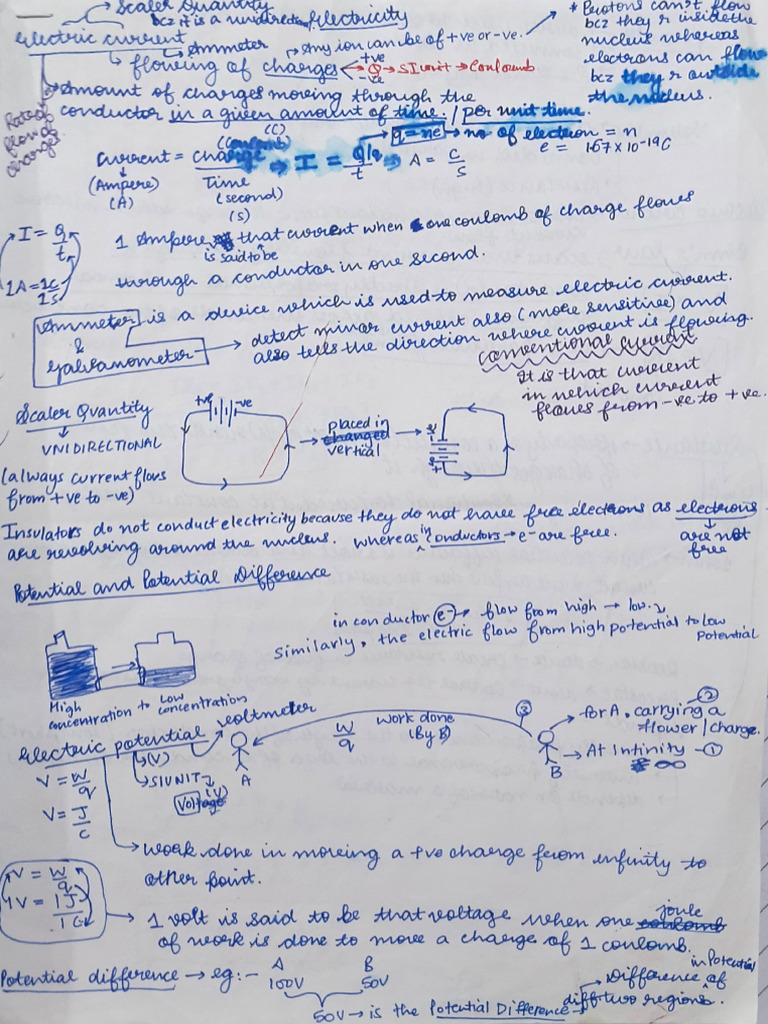 Scaler Quantity
bcz it is a unidirectn
Electricity
Electric current
Ammeter
Any ion can be of +ve or -ve.
* Protons can't flow
bcz they r inside the
nucleus whereas
electrons can flow
bcz they r outside
the nucleus.
flowing of charges
+ve
-ve
Q → SI unit → Coulomb
Rate of
flow of
charges
Amount of charges moving through the
conductor in a given amount of time. / per unit time.
(C)
(Coulomb)
q = ne → no of electron = n
e = 1.67 x 10-19C
Current = charge ⇒ I = Q/q ⇒ A = C
t S
(Ampere) Time
(A) (second)
(S)
I = Q
t
1A = 1C
1S
1 Ampere is said to be that current when one coulomb of charge flows
through a conductor in one second.
Ammeter is a device which is used to measure electric current.
&
Galvanometer → detect minor current also (more sensitive) and
also tells the direction where current is flowing.
conventional current
It is that current
in which current
flows from -ve to +ve.
Scaler Quantity
UNIDIRECTIONAL
(always current flows
from +ve to -ve)
+ve -ve
placed in
changed
vertical
Insulators do not conduct electricity because they do not have free electrons as electrons
are revolving around the nucleus. whereas in conductors → e- are free.
are not
free
Potential and Potential Difference
in conductor e- flow from high → low.
Similarly, the electric flow from high potential to low
Potential
High
concentration to Low
concentration
Electric potential
voltmeter
(V)
SI UNIT
(V)
Voltage
V = W
q
V = J
C
A
W
q
work done
(By B)
③
B
for A. carrying a ②
flower / charge.
At Infinity - ①
∞
work done in moving a +ve charge from infinity to
other point.
V = W
q
1V = 1J
1C
1 volt is said to be that voltage when one coulomb joule
of work is done to move a charge of 1 coulomb.
Potential difference → eg :- A B
100V 50V
50V → is the Potential Difference
Difference in Potential of
diff two regions.